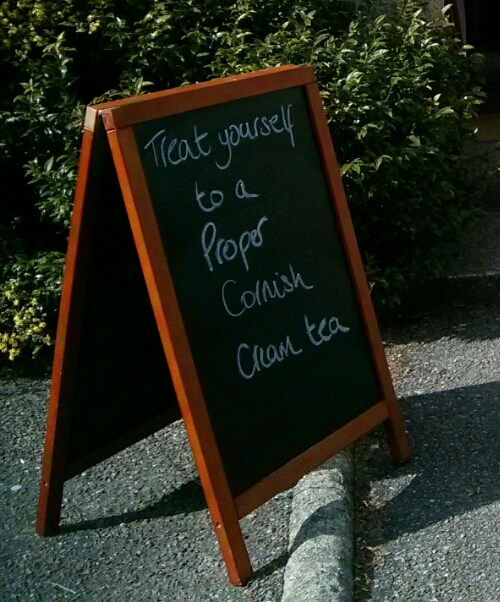 Treat yourself
to a
Proper
Cornish
Cream tea